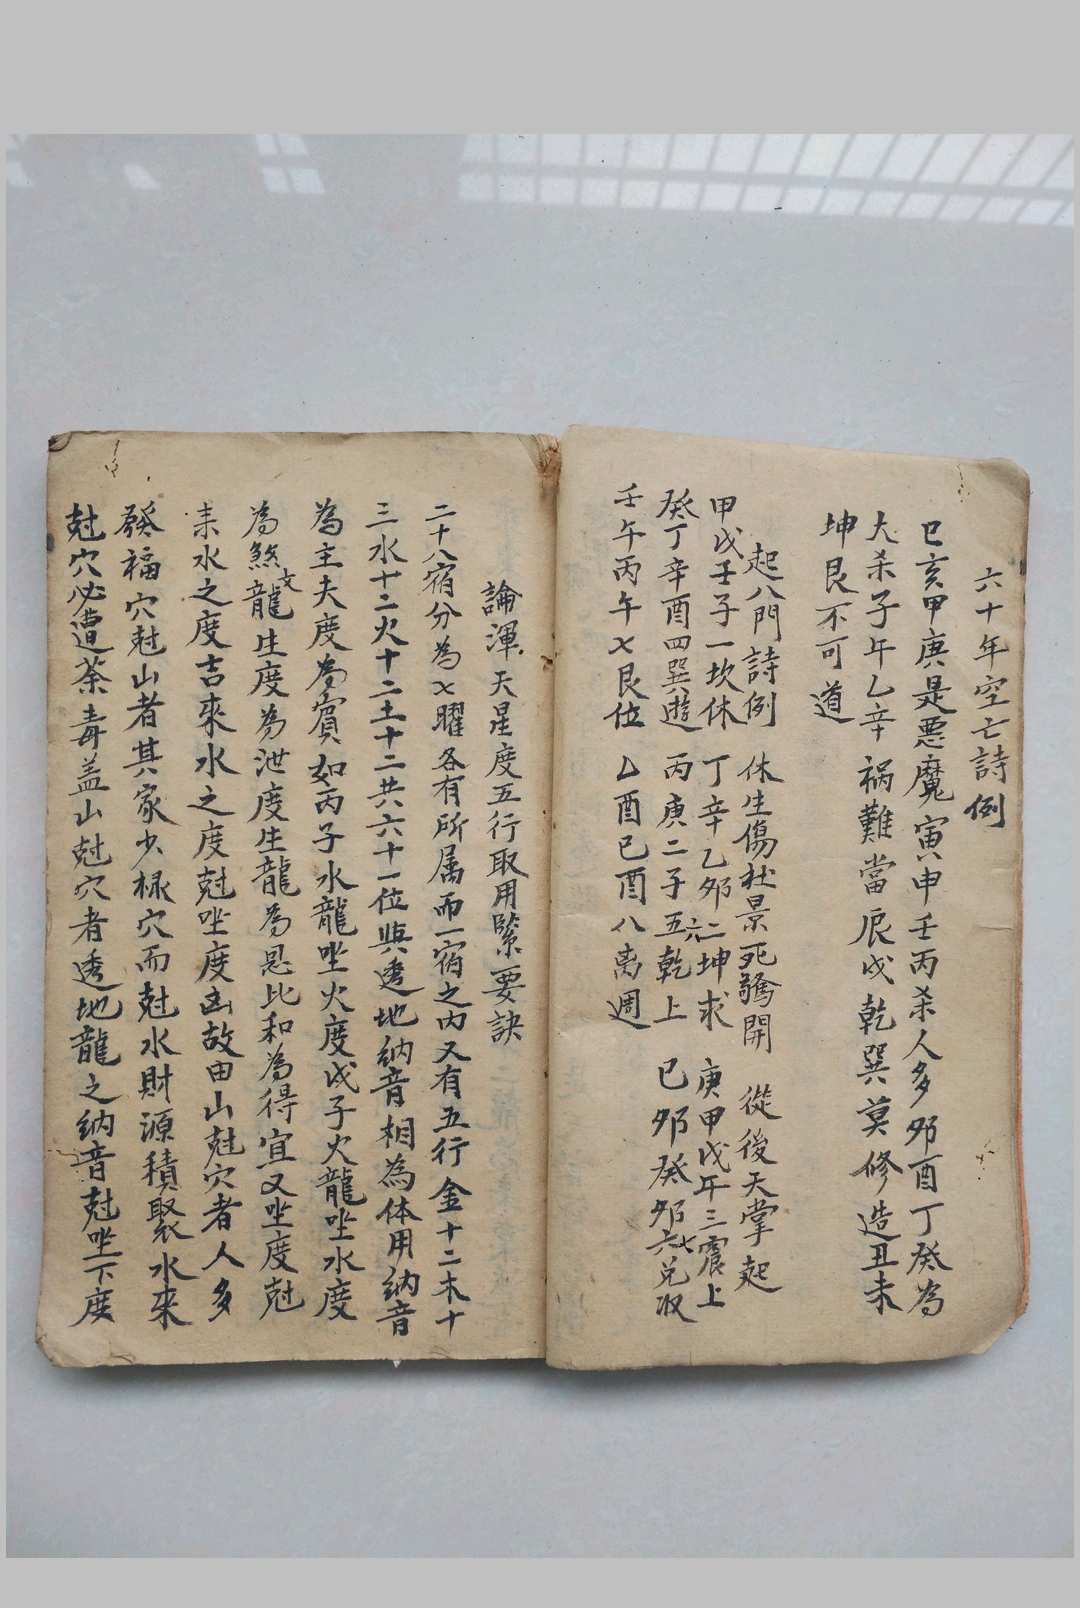 六十年空亡詩例
巳亥甲庚是悪魔寅申壬丙杀人多夘酉丁癸為
大杀子午乙辛禍難當辰戌乾巽莫修造丑未
坤艮不可道
起八門詩例 休生傷杜景死驚開 從後天掌起
甲戊壬子一坎休 丁辛乙夘二坤求 庚甲戊午三震上
癸丁辛酉四巽遊 丙庚二子五六乾上 巳夘癸夘六七兌収
壬午丙午七艮位 乙酉巳酉八离週
論渾天星度五行取用緊要訣
二十八宿分為七曜各有所属而一宿之内又有五行金十二木十
三水十二火十二土十二共六十一位與透地納音相為体用納音
為主夫度為賓如丙子水龍坐火度戊子火龍坐水度
為煞文龍生度為泄度生龍為恩比和為得宜又坐度尅
来水之度吉來水之度尅坐度凶故由山尅穴者人多
發福穴尅山者其家少祿穴而尅水財源積聚水來
尅穴必遭荼毒盖山尅穴者透地龍之納音尅坐下度